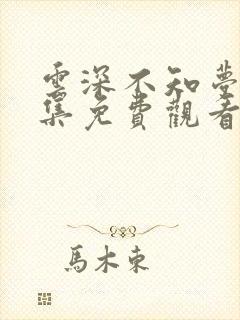 雲深不知夢
集免費觀看
馬木東